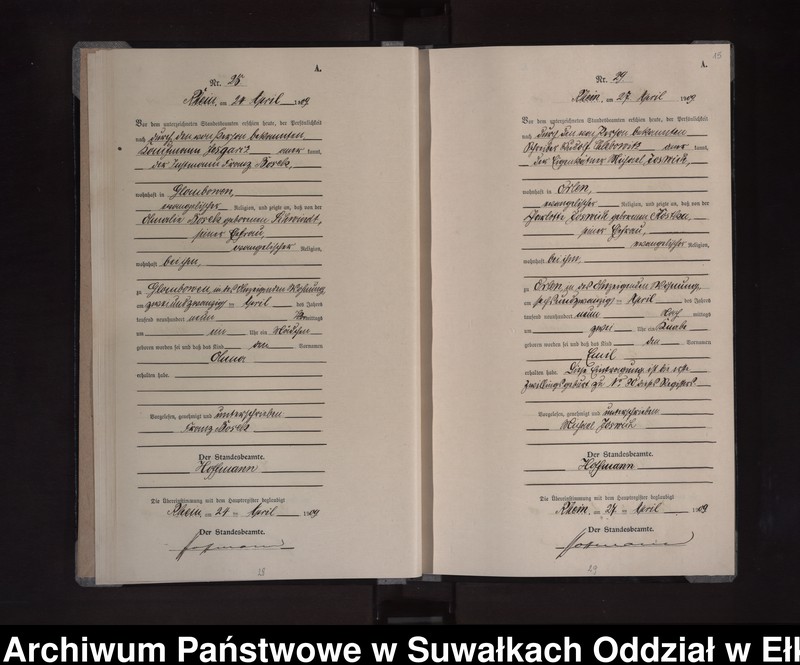 A.
Nr. 28
Rhein, am 24 April 1909
Vor dem unterzeichneten Standesbeamten erschien heute, der Persönlichkeit
nach durch den von Person bekannten
Kaufmann anerkannt,
der Instmann Franz
wohnhaft in Glombowen,
evangelischer Religion, und zeigte an, daß von der
Amalie geborenen
seiner Ehefrau,
evangelischer Religion,
wohnhaft bei ihm,
zu Glombowen, in des Anzeigenden Wohnung,
am zwei und zwanzigsten April des Jahres
tausend neunhundert neun Vormittags
um Uhr ein Mädchen
geboren worden sei und daß das Kind den Vornamen
Anna
erhalten habe.
Vorgelesen, genehmigt und unterschrieben
Franz
Der Standesbeamte.
Hoffmann
Die Übereinstimmung mit dem Hauptregister beglaubigt
Rhein, am 24 ten April 1909
Der Standesbeamte.
Hoffmann
28
15
A.
Nr. 29
Rhein, am 27 April 1909
Vor dem unterzeichneten Standesbeamten erschien heute, der Persönlichkeit
nach durch den von Person bekannten
Schreiber Rudolf anerkannt,
der Eigenkätner Michael Joswich,
wohnhaft in Orlen,
evangelischer Religion, und zeigte an, daß von der
Joswich geborenen
seiner Ehefrau,
evangelischer Religion,
wohnhaft bei ihm,
zu Orlen in des Anzeigenden Wohnung,
am sechs und zwanzigsten April des Jahres
tausend neunhundert neun Nachmittags
um zwei Uhr ein Knabe
geboren worden sei und daß das Kind den Vornamen
Emil
erhalten habe. Diese Eintragung ist die erste
Zwillingsgeburt zu No 30 dieses Registers
Vorgelesen, genehmigt und unterschrieben
Michael Joswich
Der Standesbeamte.
Hoffmann
Die Übereinstimmung mit dem Hauptregister beglaubigt
Rhein, am 27 ten April 1909
Der Standesbeamte.
Hoffmann
29
Archiwum Państwowe w Suwałkach Oddział w Eł